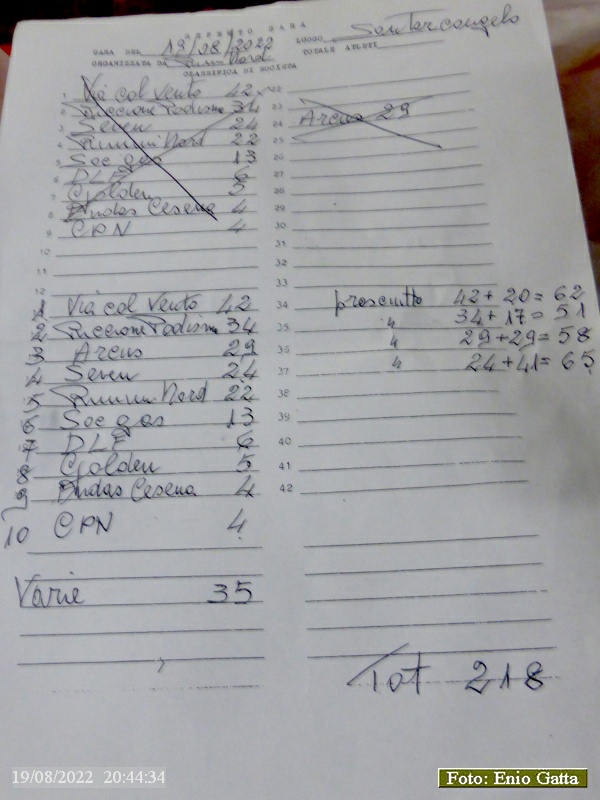 GARA
GARA DEL 19/08/2022 LUOGO Santarcangelo
ORGANIZZATA DA Rimini Nord TOTALE ATLETI
CLASSIFICA DI SOCIETA
1 Via col Vento 42 22
2 Riccione Podismo 34 23
3 Seven 24 24 Arcus 29
4 Rimini Nord 22 25
5 Soc gas 13 26
6 DLF 6 27
7 Golden 5 28
8 Endas Cesena 4 29
9 CPN 4 30
10 31
11 32
12 33
1 Via col Vento 42 34 prosciutto 42+20=62
2 Riccione Podismo 34 35 " 34+17=51
3 Arcus 29 36 " 29+29=58
4 Seven 24 37 " 24+41=65
5 Rimini Nord 22 38
6 Soc gas 13 39
7 DLF 6 40
8 Golden 5 41
9 Endas Cesena 4 42
10 CPN 4
Varie 35
Tot 218
19/08/2022 20:44:34
Foto: Enio Gatta